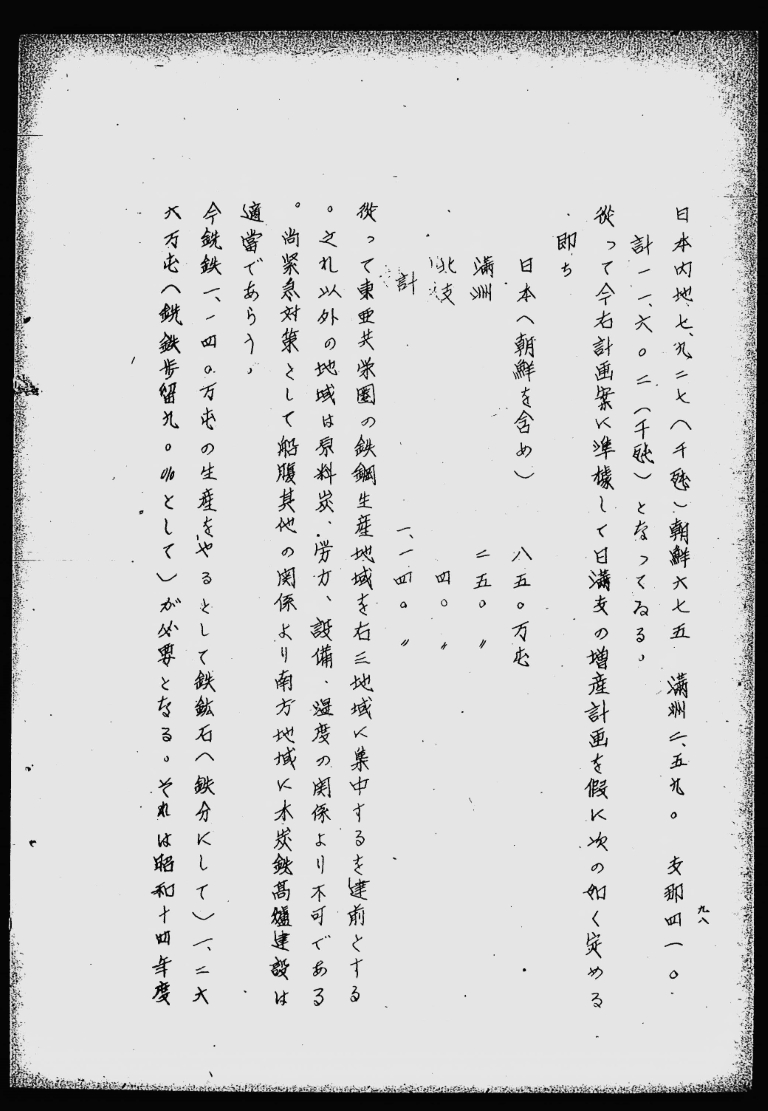 九八
日本内地七、九二七(千瓲)朝鮮六七五 満洲二、五九〇 支那四一〇
計一一、六〇二(千瓲)となってゐる。
従って今右計画案に準據して日満支の増産計画を假に次の如く定める
即ち
日本(朝鮮を含め) 八五〇万屯
満洲 二五〇〃
北支 四〇〃
計 一、一四〇〃
従って東亜共栄圏の鉄鋼生産地域を右三地域に集中するを建前とする
。之れ以外の地域は原料炭、労力、設備、湿度の関係より不可である
。尚緊急対策として船腹其他の関係より南方地域に木炭鉄高爐建設は
適當であらう。
今銑鉄一、一四〇万屯の生産をやるとして鉄鉱石(鉄分にして)一、二六
六万屯(銑鉄歩留九〇%として)が必要となる。それは昭和十四年度